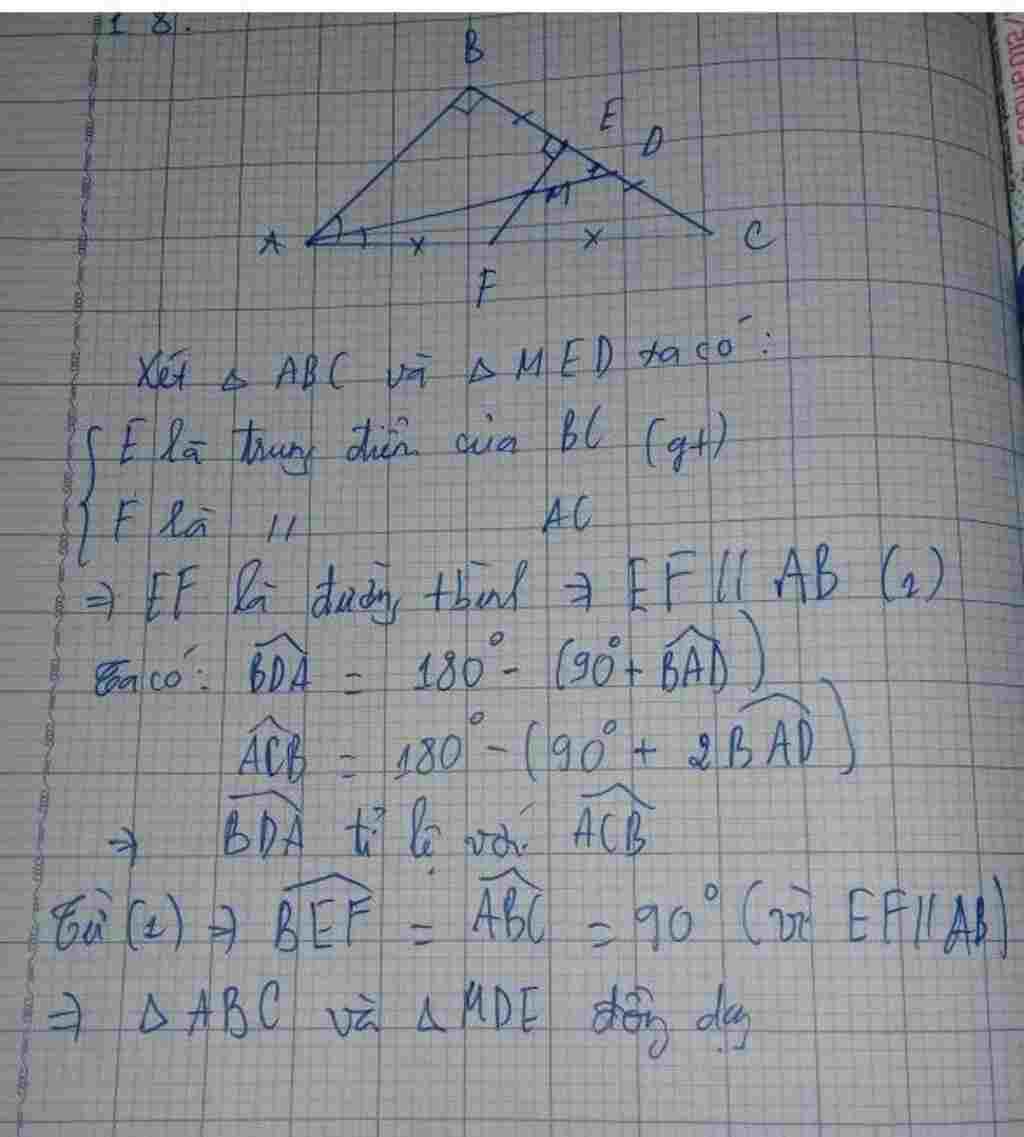 18.
B
E
D
M
A
C
F
Xét △ ABC và △ MED ta có:
E là trung điểm của BC (gt)
F là // AC
⇒ EF là đường tbình ⇒ EF // AB (1)
Ta có: BDA = 180° - (90° + BAD)
ACB = 180° - (90° + 2BAD)
⇒ BDA tỉ lệ với ACB
Từ (1) ⇒ BEF = ABC = 90° (vì EF // AB)
⇒ △ ABC và △ MDE đồng dạng